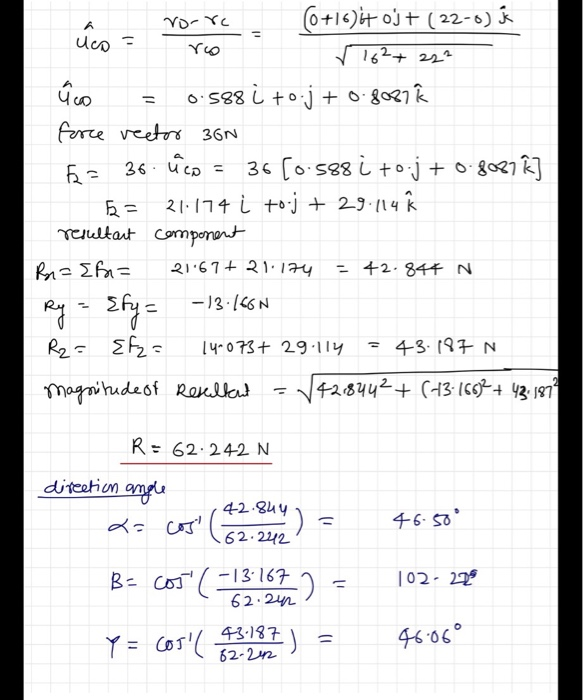 û_CD = (r_D - r_C) / r_CD = ((0+16)î + 0ĵ + (22-0)k̂) / √(16² + 22²)
û_CD = 0.588 i + 0.j + 0.8087 k̂
force vector 36N
F₂ = 36. û_CD = 36 [0.588 i + 0.j + 0.8087 k̂]
F₂ = 21.174 i + 0.j + 29.114 k̂
resultant component
Rx = Σfx = 21.67 + 21.174 = 42.844 N
Ry = Σfy = -13.166 N
Rz = Σfz = 14.073 + 29.114 = 43.187 N
magnitude of Resultant = √(42.844² + (-13.166)² + 43.187²
R = 62.242 N
direction angle
α = cos⁻¹ (42.844 / 62.242) = 46.50°
β = cos⁻¹ (-13.167 / 62.242) = 102.22°
γ = cos⁻¹ (43.187 / 62.242) = 46.06°